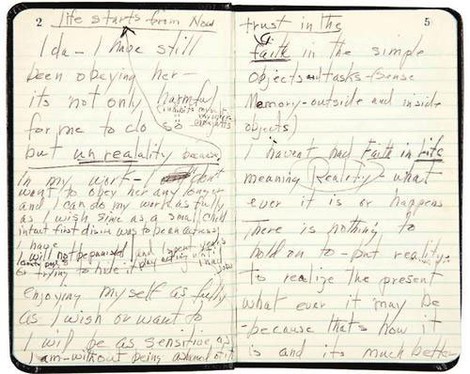 2 life starts from Now
Ida - I have still
been obeying her -
its not only harmful
inhibits myself
for me to do so
but unreality because
In my work - I don't
want to obey her any longer
and I can do my work as fully
as I wish since as a small child
intact first desire was to be an actress
I have
I will not be punished and I spent years
or trying to hide it play acting until I had
enjoying myself as fully
as I wish or want to
I will be as sensitive as
I am - without being ashamed of it
5
trust in the
faith in the simple
objects + tasks - (sense
Memory - outside and inside
objects)
I havent had Faith in Life
meaning Reality - what
ever it is or happens
There is nothing to
hold on to - but reality
To realize the present
what ever it may be
- because thats how it
is and its much better